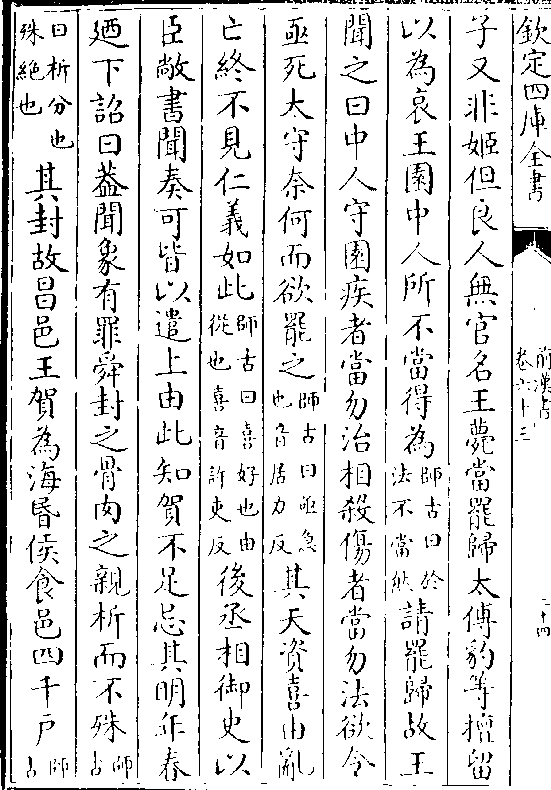 欽定四庫全書
前漢書
卷六十三
二十四
子又非姬但良人無官名王薨當罷歸太傅豹等擅留
以為哀王園中人所不當得為師古曰於法不當然請罷歸故王
聞之曰中人守園疾者當勿治相殺傷者當勿法欲令
亟死太守奈何而欲罷之師古曰亟急也音居力反其天資喜由亂
亡終不見仁義如此師古曰喜好也由從也喜音許吏反後丞相御史以
臣敞書聞奏可皆以遣上由此知賀不足忌其明年春
廼下詔曰葢聞象有罪舜封之骨肉之親析而不殊師古
曰析分也殊絕也其封故昌邑王賀為海昬侯食邑四千户師古